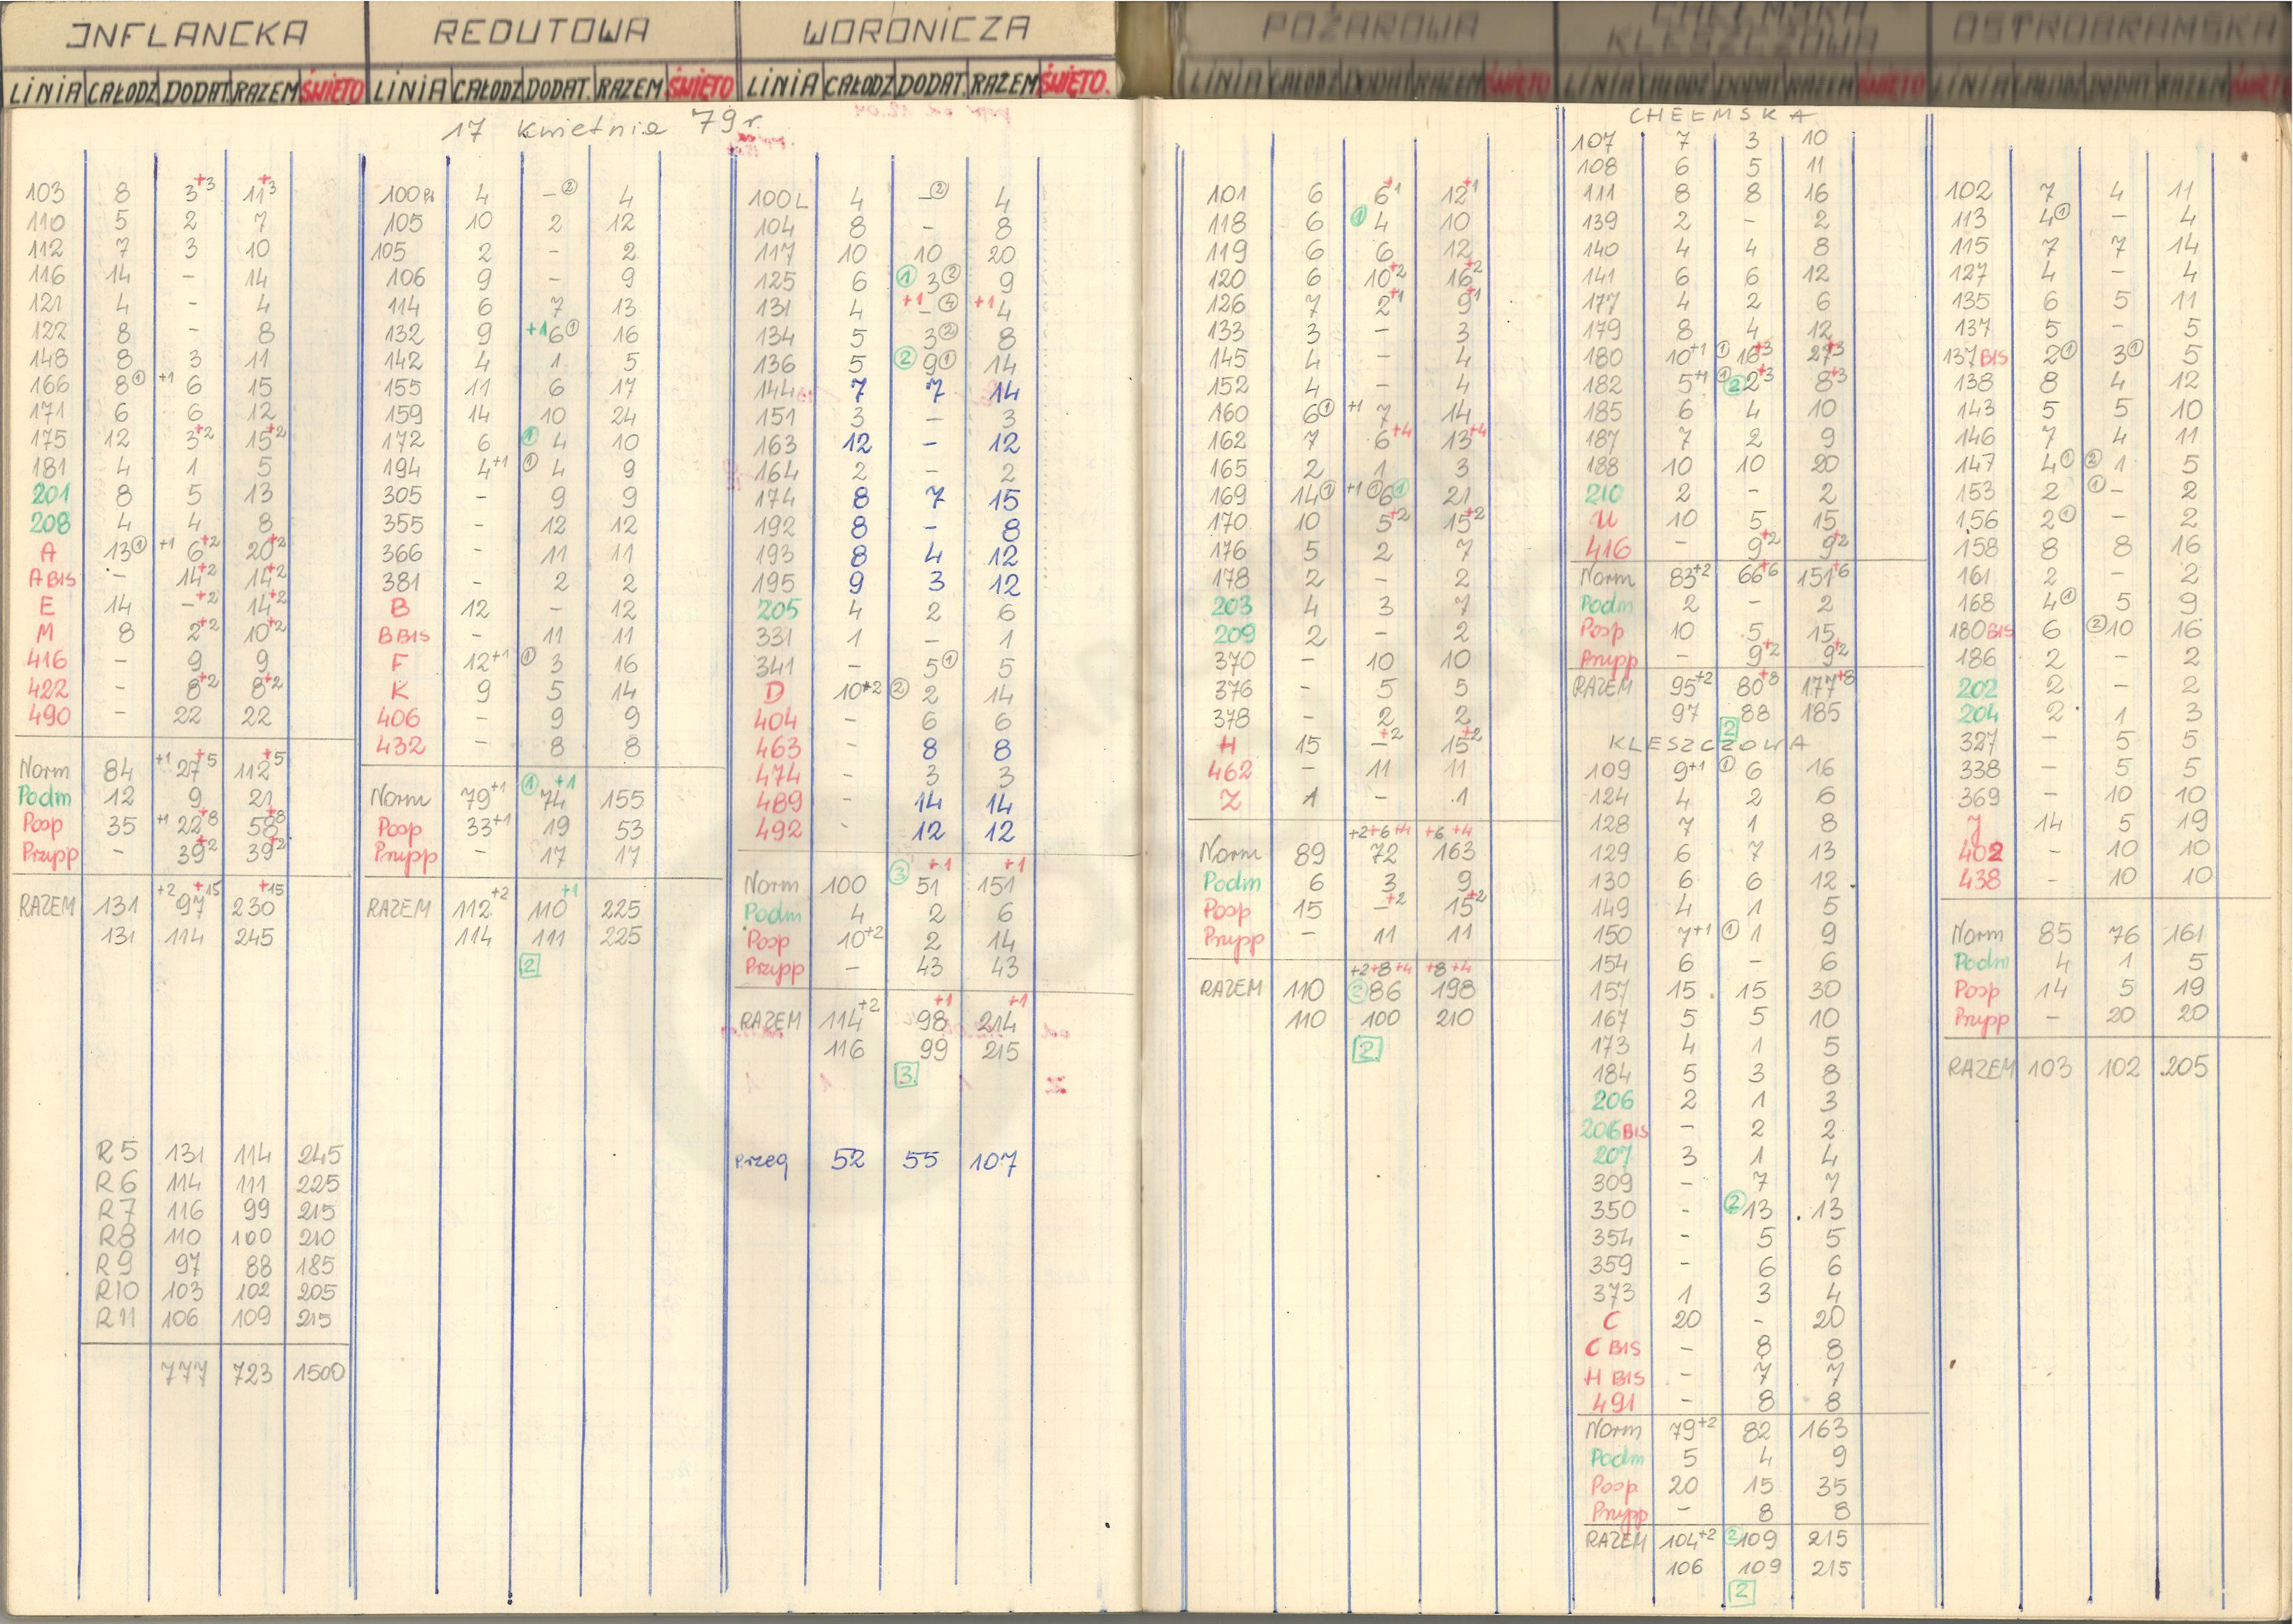 INFLANCKA
LINIA CAŁODZ DODAT. RAZEM ŚWIĘTO
17 Kwietnia 79 r.
103 8 3+3 11+3
110 5 2 7
112 7 3 10
116 14 - 14
121 4 - 4
122 8 - 8
148 8 3 11
166 8① +1 6 15
171 6 6 12
175 12 3+2 15+2
181 4 1 5
201 8 5 13
208 4 4 8
A 13① +1 6+2 20+2
A BIS - 14+2 14+2
E 14 -+2 14+2
M 8 2+2 10+2
416 - 9 9
422 - 8+2 8+2
490 - 22 22
Norm 84 +1 27+5 112+5
Podm 12 9 21
Posp 35 +1 22+8 58+8
Przypp - 39+2 39+2
RAZEM 131 +2 97+15 230+15
131 114 245
R5 131 114 245
R6 114 111 225
R7 116 99 215
R8 110 100 210
R9 97 88 185
R10 103 102 205
R11 106 109 215
777 723 1500
REDUTOWA
LINIA CAŁODZ DODAT. RAZEM ŚWIĘTO
100R 4 -② 4
105 10 2 12
105 2 - 2
106 9 - 9
114 6 7 13
132 9 +1 6① 16
142 4 1 5
155 11 6 17
159 14 10 24
172 6 ① 4 10
194 4+1 ① 4 9
305 - 9 9
355 - 12 12
366 - 11 11
381 - 2 2
B 12 - 12
B BIS - 11 11
F 12+1 ① 3 16
K 9 5 14
406 - 9 9
432 - 8 8
Norm 79+1 ① 74+1 155
Posp 33+1 19 53
Przypp - 17 17
RAZEM 112+2 110+1 225
114 111 225
2
WORONICZA
LINIA CAŁODZ DODAT. RAZEM ŚWIĘTO.
100L 4 -② 4
104 8 - 8
117 10 10 20
125 6 ① 3② 9
131 4 +1 -④ +1 4
134 5 3② 8
136 5 ② 9① 14
144 7 7 14
151 3 - 3
163 12 - 12
164 2 - 2
174 8 7 15
192 8 - 8
193 8 4 12
195 9 3 12
205 4 2 6
331 1 - 1
341 - 5① 5
D 10+2 ② 2 14
404 - 6 6
463 - 8 8
474 - 3 3
489 - 14 14
492 - 12 12
Norm 100 ③ 51+1 151+1
Podm 4 2 6
Posp 10+2 2 14
Przypp - 43 43
RAZEM 114+2 98+1 214+1
116 99 215
3
Przeg 52 55 107
POŻAROWA
LINIA CAŁODZ DODAT. RAZEM ŚWIĘTO
101 6 6+1 12+1
118 6 ① 4 10
119 6 6 12
120 6 10+2 16+2
126 7 2+1 9+1
133 3 - 3
145 4 - 4
152 4 - 4
160 6① +1 7 14
162 7 6+4 13+4
165 2 1 3
169 14① +1 ① 6① 21
170 10 5+2 15+2
176 5 2 7
178 2 - 2
203 4 3 7
209 2 - 2
370 - 10 10
376 - 5 5
378 - 2 2
H 15 -+2 15+2
462 - 11 11
Z 1 - 1
+2+6+4 +6+4
Norm 89 72 163
Podm 6 3 9
Posp 15 -+2 15+2
Przypp - 11 11
+2+8+4 +8+4
RAZEM 110 ② 86 198
110 100 210
2
CHEŁMSKA
KLESZCZOWA
LINIA CAŁODZ DODAT. RAZEM ŚWIĘTO
CHEŁMSKA
107 7 3 10
108 6 5 11
111 8 8 16
139 2 - 2
140 4 4 8
141 6 6 12
177 4 2 6
179 8 4 12
180 10+1 ① 16+3 27+3
182 5+1 ① ② 2+3 8+3
185 6 4 10
187 7 2 9
188 10 10 20
210 2 - 2
U 10 5 15
416 - 9+2 9+2
Norm 83+2 66+6 151+6
Podm 2 - 2
Posp 10 5 15
Przypp - 9+2 9+2
RAZEM 95+2 80+8 177+8
97 88 185
2
KLESZCZOWA
109 9+1 ① 6 16
124 4 2 6
128 7 1 8
129 6 7 13
130 6 6 12
149 4 1 5
150 7+1 ① 1 9
154 6 - 6
157 15 15 30
167 5 5 10
173 4 1 5
184 5 3 8
206 2 1 3
206BIS - 2 2
207 3 1 4
309 - 7 7
350 - ② 13 13
354 - 5 5
359 - 6 6
373 1 3 4
C 20 - 20
C BIS - 8 8
H BIS - 7 7
491 - 8 8
Norm 79+2 82 163
Podm 5 4 9
Posp 20 15 35
Przypp - 8 8
RAZEM 104+2 ② 109 215
106 109 215
2
OSTROBRAMSKA
LINIA CAŁODZ DODAT. RAZEM ŚWIĘT
102 7 4 11
113 4① - 4
115 7 7 14
127 4 - 4
135 6 5 11
137 5 - 5
137BIS 2① 3① 5
138 8 4 12
143 5 5 10
146 7 4 11
147 4① ② 1 5
153 2 ① - 2
156 2① - 2
158 8 8 16
161 2 - 2
168 4① 5 9
180BIS 6 ② 10 16
186 2 - 2
202 2 - 2
204 2 1 3
327 - 5 5
338 - 5 5
369 - 10 10
J 14 5 19
402 - 10 10
438 - 10 10
Norm 85 76 161
Podm 4 1 5
Posp 14 5 19
Przypp - 20 20
RAZEM 103 102 205